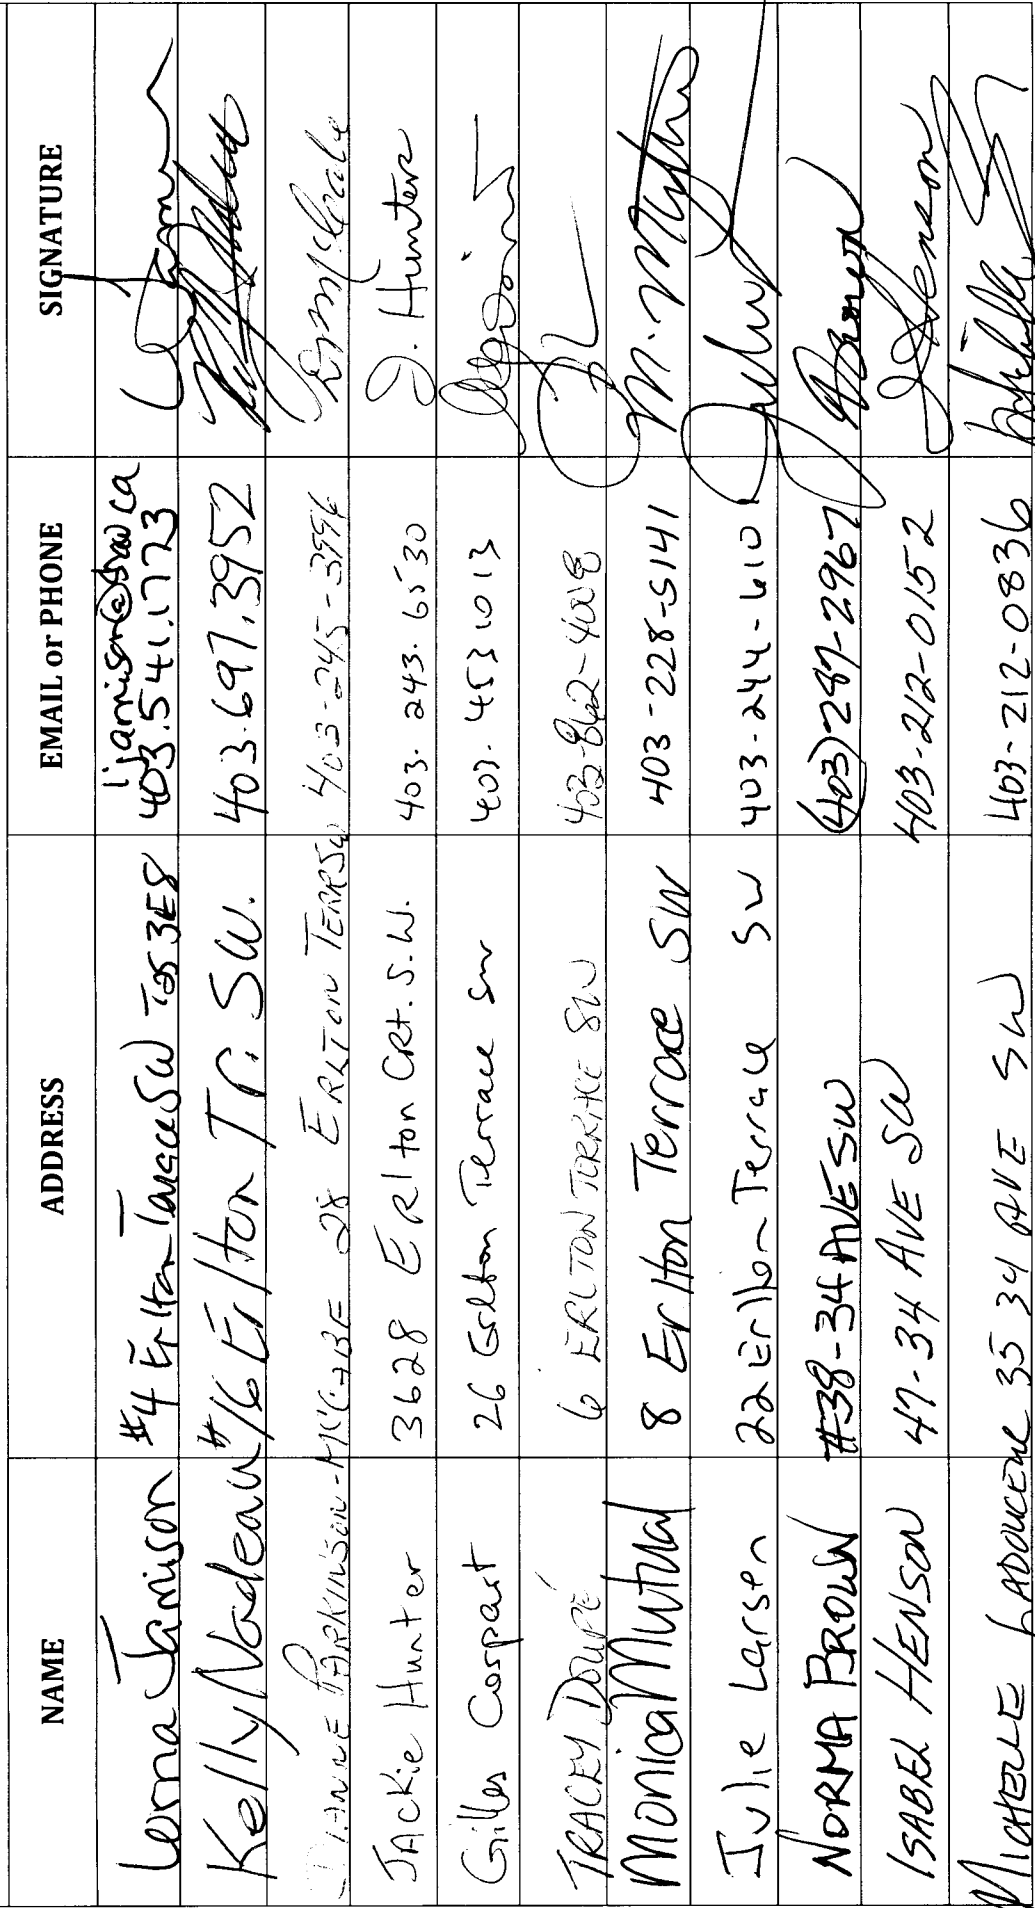 NAME ADDRESS EMAIL or PHONE SIGNATURE
Jamison #4 Erlton Terrace SW T2S 3E8 ljamison@shaw.ca
403.541.1773
Kelly Nadeau #16 Erlton Tr. SW. 403.697.3952
DIANNE PARKINSON-MCCABE 28 ERLTON TERR SW 403-245-3996
JAckie Hunter 3628 ERlton CRt. S.W. 403.243.6530 J. Hunter
Gilles 26 Erlton Terrace SW 403.453 1013
TRACEY DOUPÉ 6 ERLTON TERRACE SW 403-862-4008
Monica Muthal 8 Erlton Terrace SW 403-228-5141
Julie Larsen 22 Erlton Terrace SW 403-244-6101
NORMA BROWN #38-34 AVE SW (403)287-2967 Brown
ISABEL HENSON 47-34 AVE SW 403-212-0152 Henson
MICHELLE LADOUCEUR 35 34 AVE SW 403-212-0836